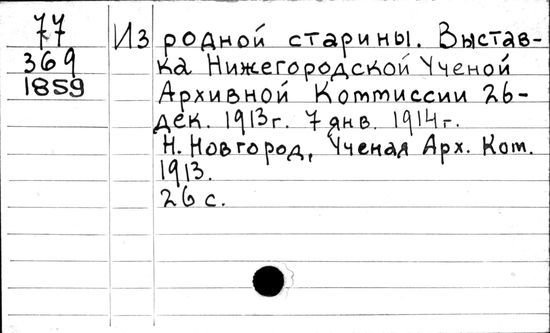 77
369
1859
Из родной старины. Выстав-
ка Нижегородской Ученой
Архивной Коммиссии 26-
дек. 1913г. 7 янв. 1914г.
Н. Новгород, Ученая Арх. Ком.
1913.
26 с.